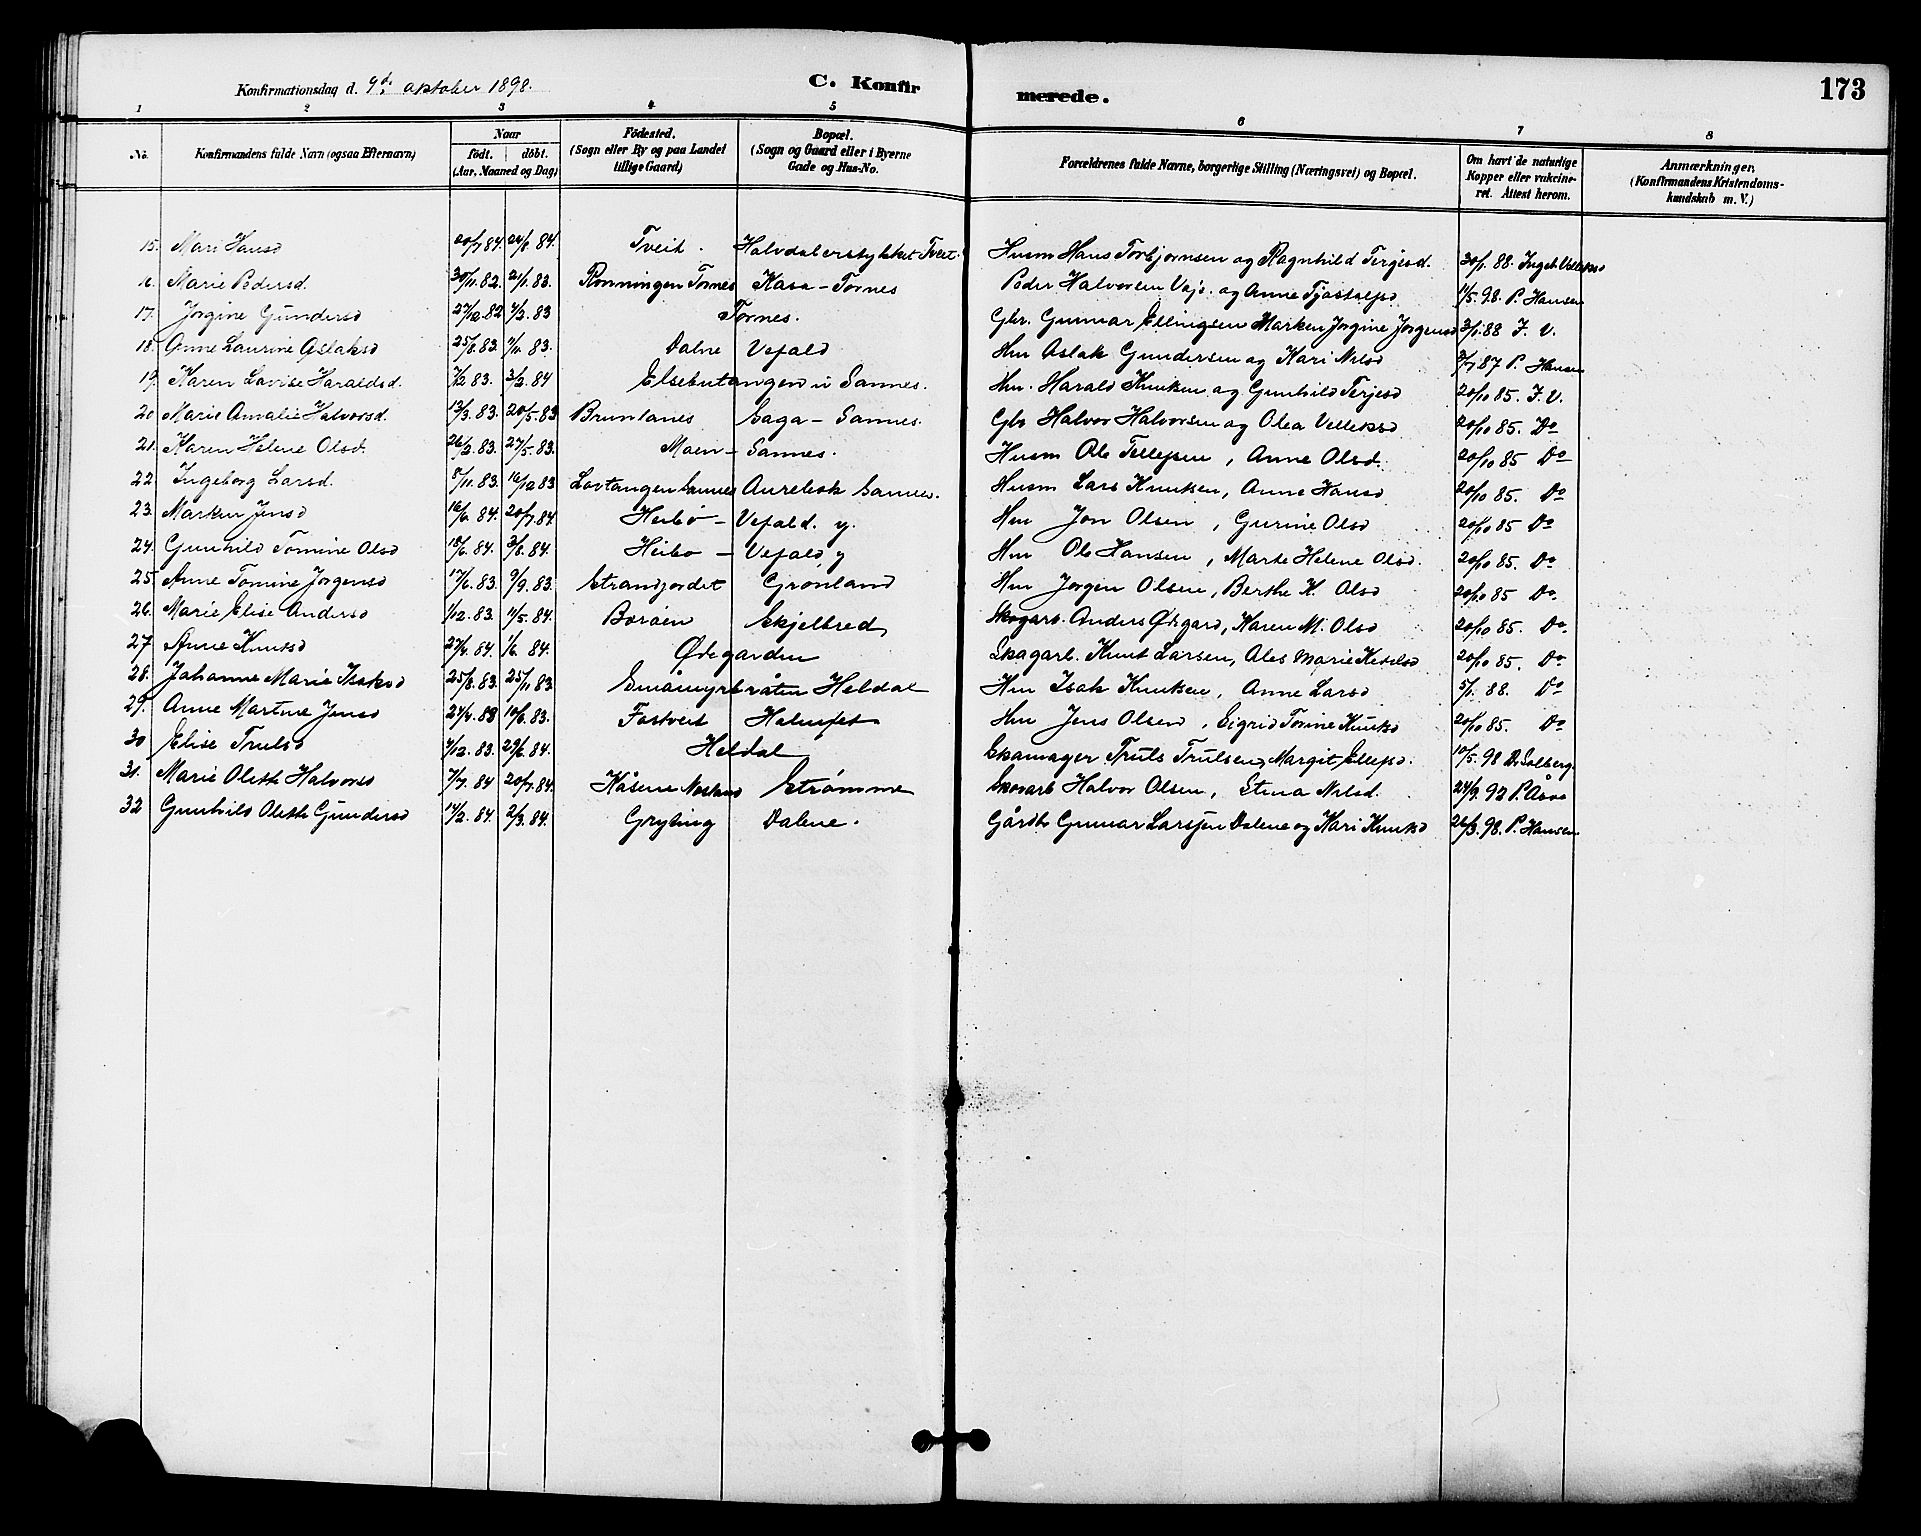 Konfirmationsdag d. 9de oktober 1898. C. Konfirmerede. 173
1 2 3 4 5 6 7 8
No. Konfirmandens fulde Navn (ogsaa Efternavn) Naar födt. döbt. (Aar, Maaned og Dag) Födested. (Sogn eller By og paa Landet tillige Gaard) Bopæl. (Sogn og Gaard eller i Byerne Gade og Hus-No. Forældrenes fulde Navne, borgerlige Stilling (Næringsvei) og Bopæl. Om havt de naturlige Kopper eller vakcineret. Attest herom. Anmærkninger, (Konfirmandens Kristendomskundskab m. V.)
15. Mari Hansd 20/7 84. 24/8 84. Tveit. Halvdalerstykket Tveit. Husm Hans Torbjornsen og Ragnhild Tergesd. 30/1. 88. Ingeb. Velleksd
16. Marie Pedersd. 30/11. 82. 21/1. 83. Ronningen Tornes Kasa - Tornes Peder Halvorsen Vejs. og Anne Tjostolfsd 11/5. 98. P. Hansen
17. Jorgine Gundersd 27/12 82 4/2. 83 Tornes. Gbr. Gunnar Ellingsen Marken Jorgine Jorgensd 3/1. 88 I. V.
18. Anne Laurine Aslaksd 25/8. 83. 4/11. 83. Dalne Vefald Hm Aslak Gundersen og Kari Nilsd 7/7 87 P. Hansen
19. Karen Lovise Haraldsd. 7/12 83. 3/2. 84 Elsebutangen u Sannes. Hm. Harald Knutsen og Gunhild Terjesd 20/10 85. I. V.
20 Marie Amalie Halvorsd. 13/3. 83. 20/5. 83 Brunlanes Saga - Sannes. Gbr Halvor Halvorsen og Olea Velleksd 20/10 85. Do
21. Karen Helene Olsd. 26/2. 83. 27/5. 83. Moen - Sannes. Husm Ole Tellefsen, Anne Olsd. 20/10 85 Do
22. Ingeborg Larsd. 8/11. 83. 16/12 83 Lovtangen Sannes Aurebek Sannes. Husm Lars Knutsen, Anne Hansd 20/10 85. Do
23. Marken Jensd 16/6. 84. 20/7. 84. Heibö - Vefald. y. Hm Jon Olsen, Gurine Olsd 20/10 85 Do
24. Gunhild Tomine Olsd 18/6. 84. 3/8. 84. Heibø - Vefald y Hm Ole Hansen, Marte Helene Olsd. 20/10 85. Do
25. Anne Tomine Jorgensd 17/6. 83. 9/9. 83. Strandjordet Grönland Hm Jorgen Olsen, Berthe K. Olsd 20/10 85 Do.
26. Marie Elise Andersd 1/12. 83. 11/5. 84. Boröen Skjelbred Skogarb. Anders Ødegard, Karen M. Olsd 20/10 85. Do.
27. Anne Knutsd 27/4. 84. 1/6. 84. Ødegarden Skogarb. Knut Larsen, Ales Marie Ketilsd 20/10 85. Do
28. Johanne Marie Isaksd 25/8. 83. 25/11. 83 Småmyrbråten Heldal Hm Isak Knutsen, Anne Larsd 5/1. 88. Do
29. Anne Martine Jensd 24/4. 83 10/6. 83. Fostveit Holmfet Hm Jens Olsen, Sigrid Tomine Knutsd 20/10 85. Do
30 Elise Trulsd 4/12. 83. 29/6. 84. Heldal Skomager Truls Trulsen, Margit Ellefsd. 10/5. 98 D. Solberg
31. Marie Oleth Halvorsd 7/7. 84 20/7. 84. Kåsene Nesland Strømme Skovarb Halvor Olsen, Stina Nilsd. 24/9. 92 P. Åsvo
32 Gunhild Oleth Gundersd 14/2. 84. 2/3. 84. Gryting Dalene. Gårdb Gunnar Larssen Dalene og Kari Knutsd 26/3. 98. P. Hansen